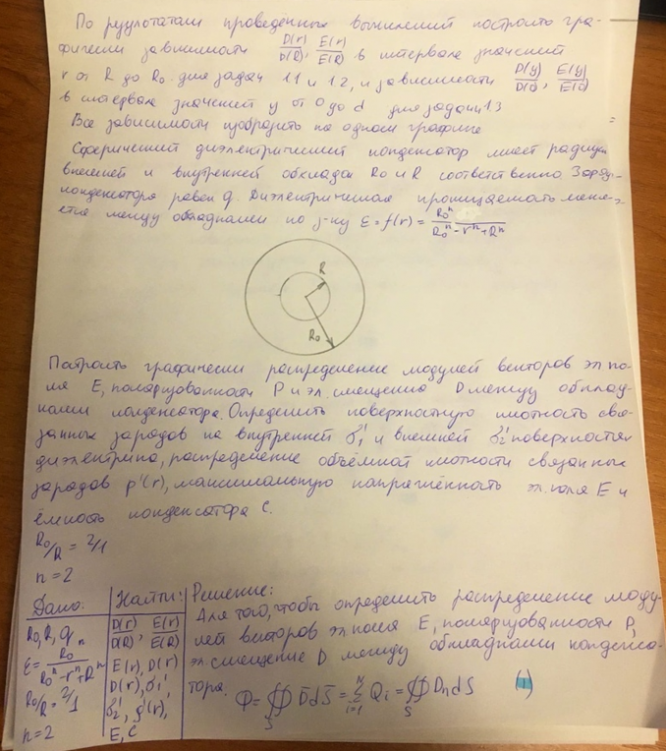 По результатам проведённых вычислений построить гра-
фически зависимости D(r)/D(R), E(r)/E(R) в интервале значений
r от R до R₀ для задач 1.1 и 1.2, и зависимости D(y)/D(d), E(y)/E(d)
в интервале значений y от 0 до d для задачи 1.3
Все зависимости изобразить на одном графике
Сферический диэлектрический конденсатор имеет радиусы
внешней и внутренней обкладок R₀ и R соответственно Заряд
конденсатора равен q. Диэлектрическая проницаемость меня-
ется между обкладками по з-ну ε = f(r) = R₀ⁿ/(R₀ⁿ - rⁿ + Rⁿ)
R
R₀
Построить графически распределение модулей векторов эл по-
ля E, поляризованности P и эл. смещения D между обклад-
ками конденсатора. Определить поверхностную плотность свя-
занных зарядов на внутренней σ₁' и внешней σ₂' поверхностях
диэлектрика, распределение объёмной плотности связанных
зарядов ρ'(r), максимальную напряжённость эл. поля E и
ёмкость конденсатора C.
R₀/R = 2/1
n = 2
Дано: Найти: Решение:
R₀, R, q
ε = R₀ⁿ/(R₀ⁿ - rⁿ + Rⁿ)
R₀/R = 2/1
n = 2
D(r)/D(R), E(r)/E(R)
E(r), D(r)
D(r), σ₁',
σ₂', ρ'(r),
E, C
Для того, чтобы определить распределение моду-
лей векторов эл поля E, поляризованности P,
эл. смещение D между обкладками конденса-
тора. Φ = ∯ₛ D̄dS̄ = Σᵢ₌₁ᴺ Qᵢ = ∯ₛ DₙdS (1)